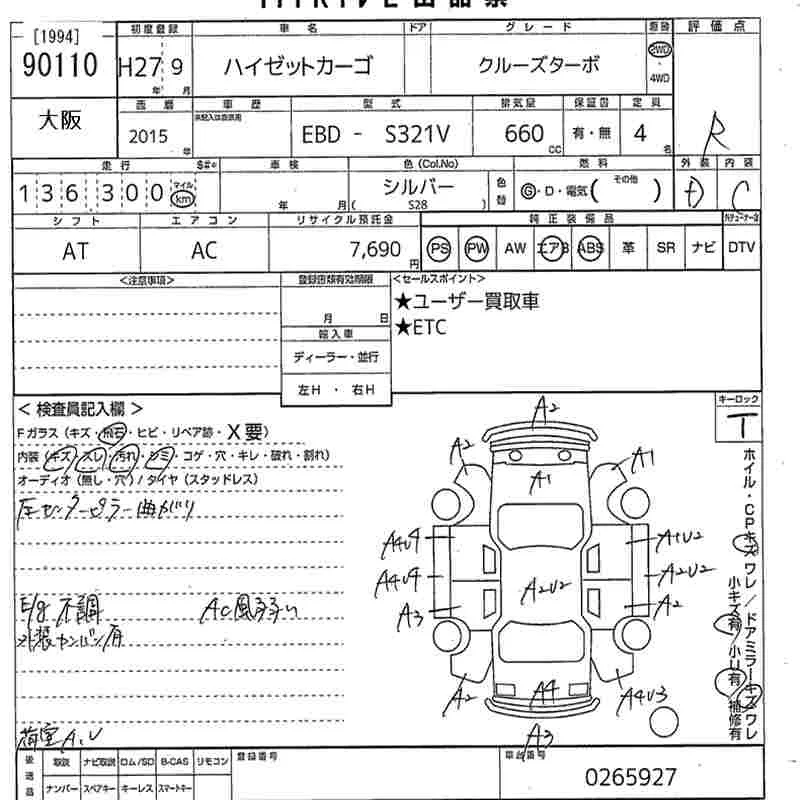 [1994]
90110
初度登録 車名 ドア グレード 駆動 評価点
H27 9 年 月 ハイゼットカーゴ クルーズターボ 2WD 4WD
大阪
西暦 車歴 型式 排気量 保証書 定員 R
2015 年 未記入は自家用 EBD - S321V 660 CC 有・無 4 名
走行 車検 色(Col.No) 燃料 外装 内装
136,300 マイル km 年 月 シルバー ( S28 ) 色替 G・D・電気( その他 ) D C
シフト エアコン リサイクル預託金 純正装備品
AT AC 7,690 円 PS PW AW エアB ABS 革 SR ナビ DTV
<注意事項> 登録書類有効期限 <セールスポイント>
月 日 ★ユーザー買取車
輸入車 ★ETC
ディーラー・並行
左H ・ 右H
< 検査員記入欄 > キーロック
Fガラス (キズ・飛石・ヒビ・リペア跡・X要) T
内装 (キズ・スレ・汚れ・シミ・コゲ・穴・キレ・破れ・割れ)
オーディオ (無し・穴) / タイヤ (スタッドレス)
左センターピラー曲がり
E/g 不調 AC風
外装カンバン有
荷室A,U
A2
A2 A1
A1
A4U4 A1U2
A4U4 A2U2 A2U2
A3 A2
A2 A4 A4U3
A3
ホイル・CPキズ ワレ / ドアミラーキズワレ
小キズ有 小U有 補修有
後送品 取説 ナビ取説 ロム/SD B-CAS リモコン 登録番号 車台番号
ナンバー スペアキー キーレス スマートキー 0265927